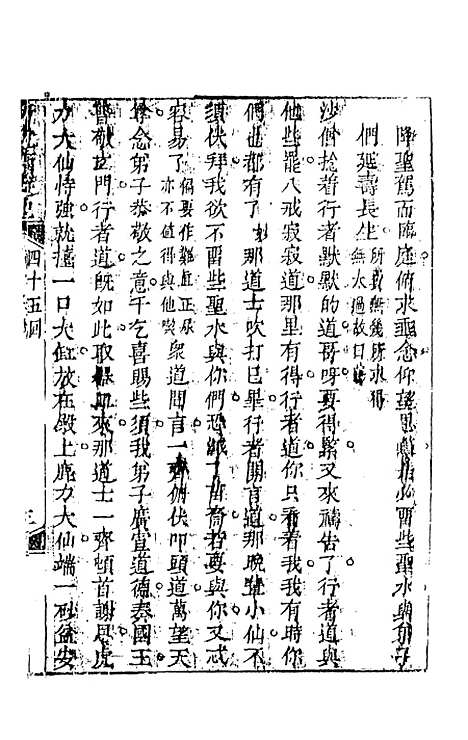 降聖駕而臨庭俯求垂念仰望恩慈留些聖水與弟子
們延壽長生所費無幾所求
沙僧捻着行者默默的道哥呀要得緊又來禱告了行者道與
他些罷八戒寂寂道那里有得行者道你只看着我我有時你
們也都有了那道士吹打已畢行者開言道那晚輩小仙不
須伏拜我欲不留些聖水與你們恐滅了苗裔若要與你又忒
容易了偏要作難眾道聞言一齊俯伏叩頭道萬望天
尊念弟子恭敬之意千乞喜賜些須我弟子廣宣道德奏國王
普敬玄門行者道既如此取器皿來那道士一齊頓首謝恩虎
力大仙恃強就擡一口大缸放在殿上鹿力大仙端一砂盆安
四十五回
三